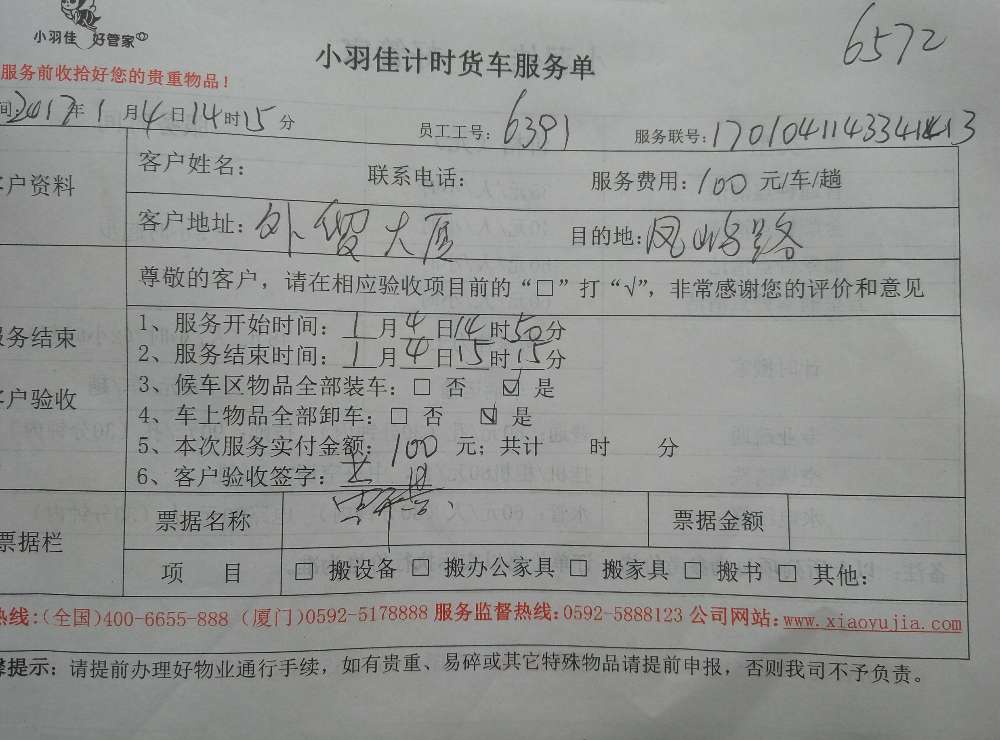 小羽佳 好管家
6572
小羽佳计时货车服务单
服务前收拾好您的贵重物品！
间:2017年1月4日14时15分 员工工号:6391 服务联号:
户资料 客户姓名: 联系电话: 服务费用:100元/车/趟
客户地址:外贸大厦 目的地:凤屿路
尊敬的客户，请在相应验收项目前的“□”打“√”，非常感谢您的评价和意见
服务结束
客户验收
1、服务开始时间:1月4日14时50分
2、服务结束时间:1月4日15时15分
3、候车区物品全部装车:□ 否 ☑ 是
4、车上物品全部卸车:□ 否 ☑ 是
5、本次服务实付金额:100元;共计 时 分
6、客户验收签字:
票据栏 票据名称 票据金额
项 目 □ 搬设备 □ 搬办公家具 □ 搬家具 □ 搬书 □ 其他:
热线:(全国)400-6655-888 (厦门)0592-5178888 服务监督热线:0592-5888123 公司网站:www.xiaoyujia.com
提示:请提前办理好物业通行手续，如有贵重、易碎或其它特殊物品请提前申报，否则我司不予负责。